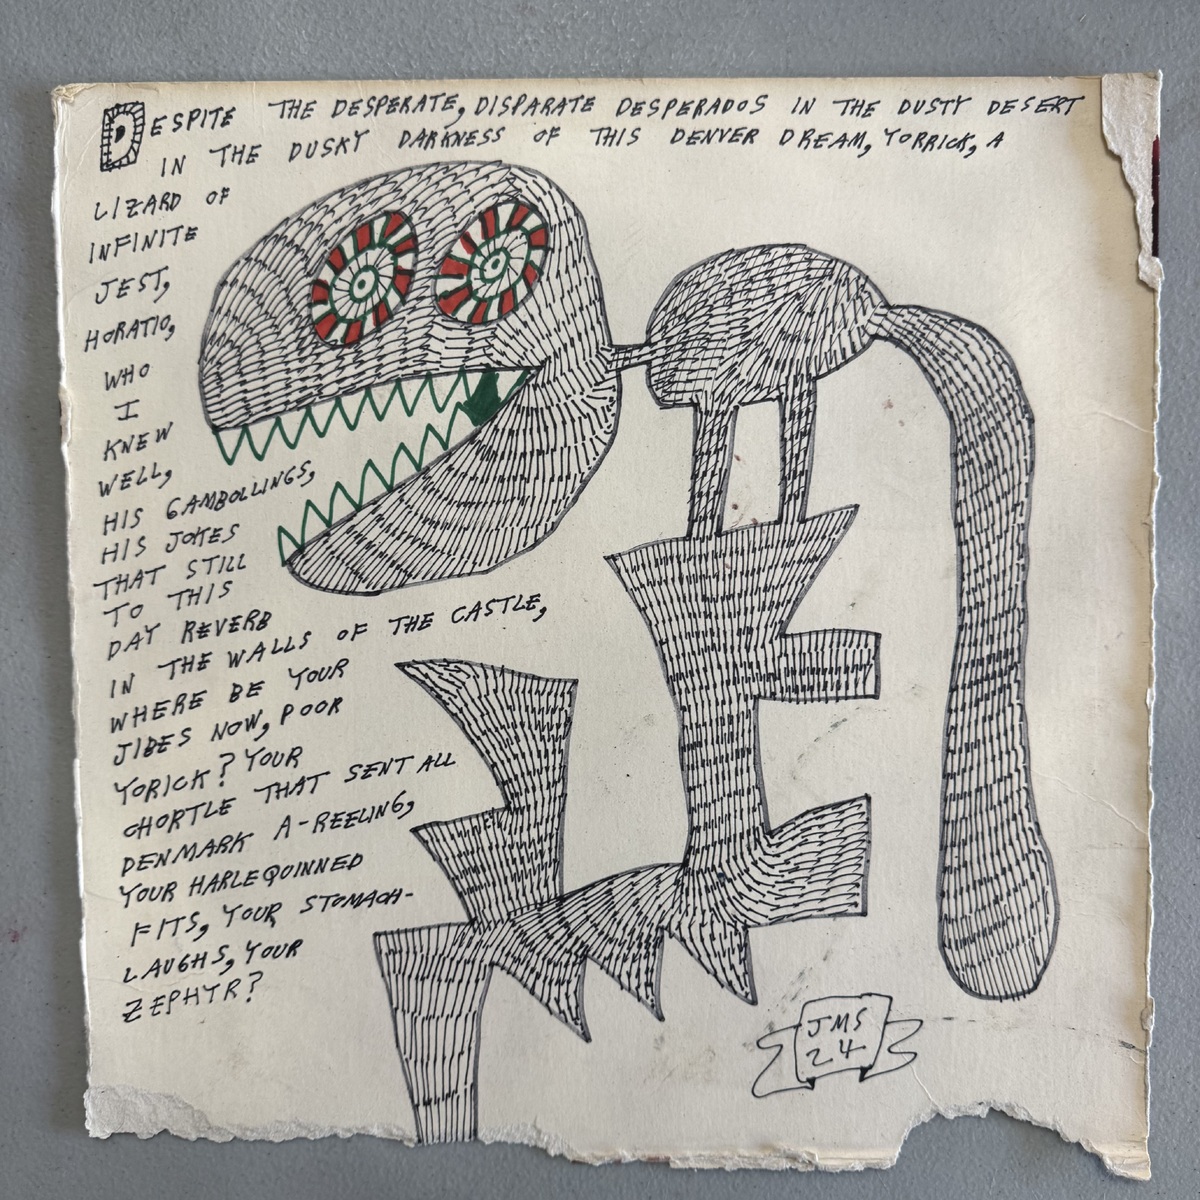 DESPITE THE DESPERATE, DISPARATE DESPERADOS IN THE DUSTY DESERT
IN THE DUSKY DARKNESS OF THIS DENVER DREAM, YORRICK, A
LIZARD OF
INFINITE
JEST,
HORATIO,
WHO
I
KNEW
WELL,
HIS GAMBOLLINGS,
HIS JOKES
THAT STILL
TO THIS
DAY REVERB
IN THE WALLS OF THE CASTLE,
WHERE BE YOUR
JIBES NOW, POOR
YORICK? YOUR
CHORTLE THAT SENT ALL
DENMARK A-REELING,
YOUR HARLEQUINNED
FITS, YOUR STOMACH-
LAUGHS, YOUR
ZEPHYR?
JMS
24